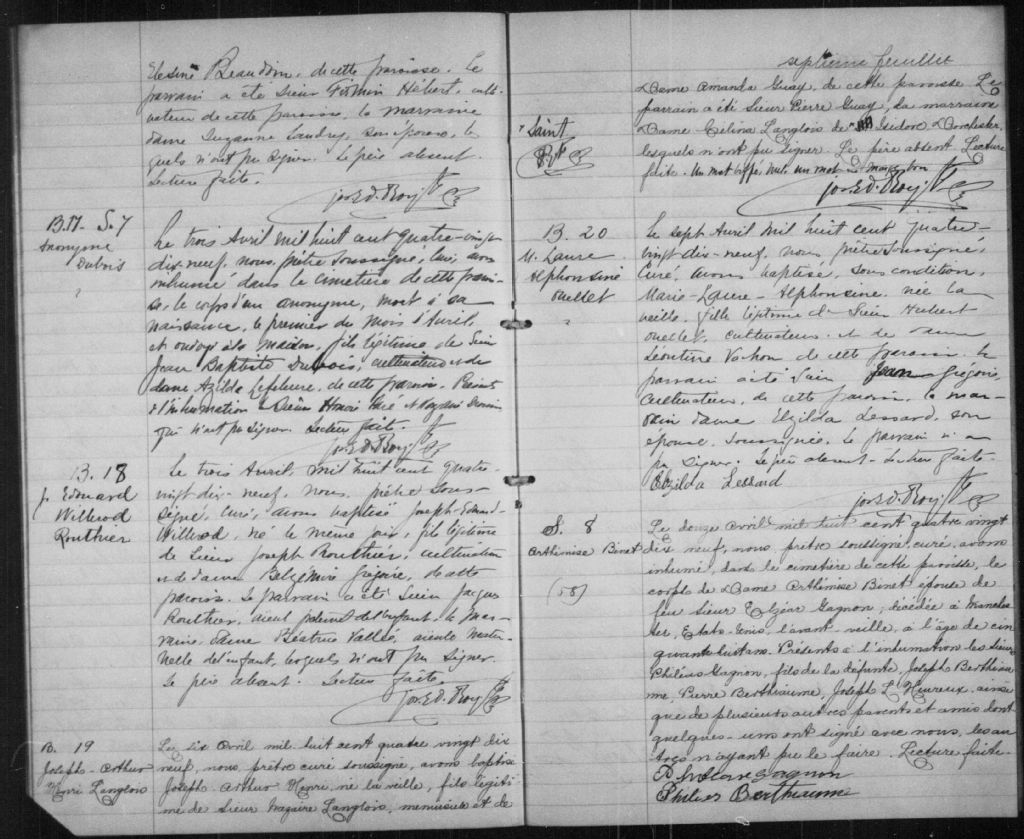 Elesine Beaudoin, de cette paroisse. Le
parrain a été Sieur Firmin Hébert, culti-
vateur de cette paroisse, la marraine
dame Suzanne Landry, son épouse, les-
quels n'ont pu signer. Le père absent.
Lecture faite.
Jos. Ed. Roy Ptr
B.17 - S.7
Anonyme
Dubois
Le trois Avril mil huit cent quatre-vingt
dix-neuf, nous, prêtre soussigné, curé, avons
inhumé dans le cimetière de cette parois-
se, le corps d'un anonyme, mort à sa
naissance, le premier du mois d'Avril,
et ondoyé à la maison, fils légitime de Sieur
Jean Baptiste Dubois, cultivateur et de
dame Azilda Lefebvre, de cette paroisse. Présents
à l'inhumation Honoré et
qui n'ont pu signer. Lecture faite.
Jos. Ed. Roy Ptr
B. 18
J. Edouard
Willrod
Routhier
Le trois Avril, mil huit cent quatre-
vingt dix-neuf, nous, prêtre sous-
signé, curé, avons baptisé Joseph-Edouard-
Willrod, né le même jour, fils légitime
de Sieur Joseph Routhier, cultivateur
et de dame Grégoire, de cette
paroisse. Le parrain a été Sieur Jacques
Routhier, aieul paternel de l'enfant, la mar-
raine, dame Béatrice Vallée, aieule mater-
nelle de l'enfant, lesquels n'ont pu signer.
Le père absent. Lecture faite.
Jos. Ed. Roy Ptr
B. 19
Joseph-Arthur
Henri Langlois
Le six avril mil huit cent quatre vingt dix
neuf, nous, prêtre curé soussigné, avons baptisé
Joseph Arthur Henri, né la veille, fils légiti-
me de Sieur Nazaire Langlois, menuisier et de
septième feuillet
Dame Amanda Guay, de cette paroisse. Le
parrain a été Sieur Pierre Guay, la marraine
Dame Célina Langlois de Isidore Dorchester,
+ Saint
lesquels n'ont pu signer. Le père absent. Lecture
faite. Un mot biffé nul, un mot en marge bon
Jos. Ed. Roy Ptr
B. 20
M. Laure
Alphonsine
Ouellet
Le sept Avril mil huit cent quatre-
vingt dix-neuf, nous, prêtre soussigné,
curé, avons baptisé, sous condition,
Marie-Laure-Alphonsine, née la
veille, fille légitime de Sieur Hubert
Ouellet, cultivateur, et de dame
Léontine Vachon de cette paroisse. Le
parrain a été Sieur Jean Grégoire,
cultivateur, de cette paroisse, la mar-
raine dame Elzilda Lessard, son
épouse, soussignée. Le parrain n'a
pu signer. Le père absent. Lecture faite.
Elzilda Lessard
Jos. Ed. Roy Ptr
S. 8
Arthémise Binet
(58)
Le douze avril mil huit cent quatre vingt
dix neuf, nous, prêtre soussigné, curé, avons
inhumé, dans le cimetière de cette paroisse, le
corps de Dame Arthémise Binet épouse de
feu Sieur Elzéar Gagnon, décédée à Manches-
ter, Etats-Unis, l'avant-veille, à l'âge de cin
quante huit ans. Présents à l'inhumation les Sieurs
Philéas Gagnon, fils de la défunte, Joseph Berthiau
me, Pierre Berthiaume, Joseph L'Heureux, ainsi
que de plusieurs autres parents et amis dont
quelques-uns ont signé avec nous, les au
tres n'ayant pu le faire. Lecture faite.
Gagnon
Philias Berthiaume